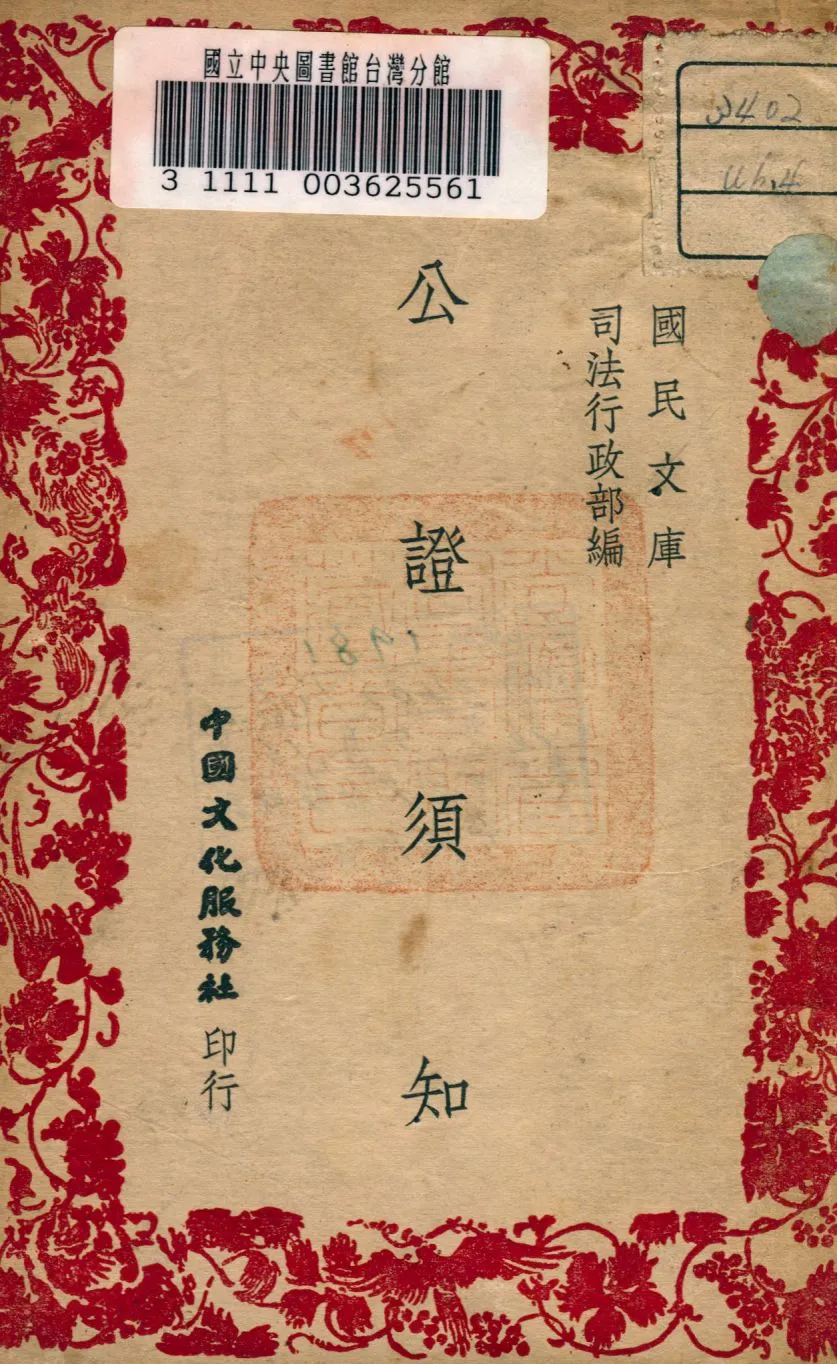 國立中央圖書館台灣分館
3 1111 003625561
3402
國民文庫
司法行政部編
公證須知
中國文化服務社 印行